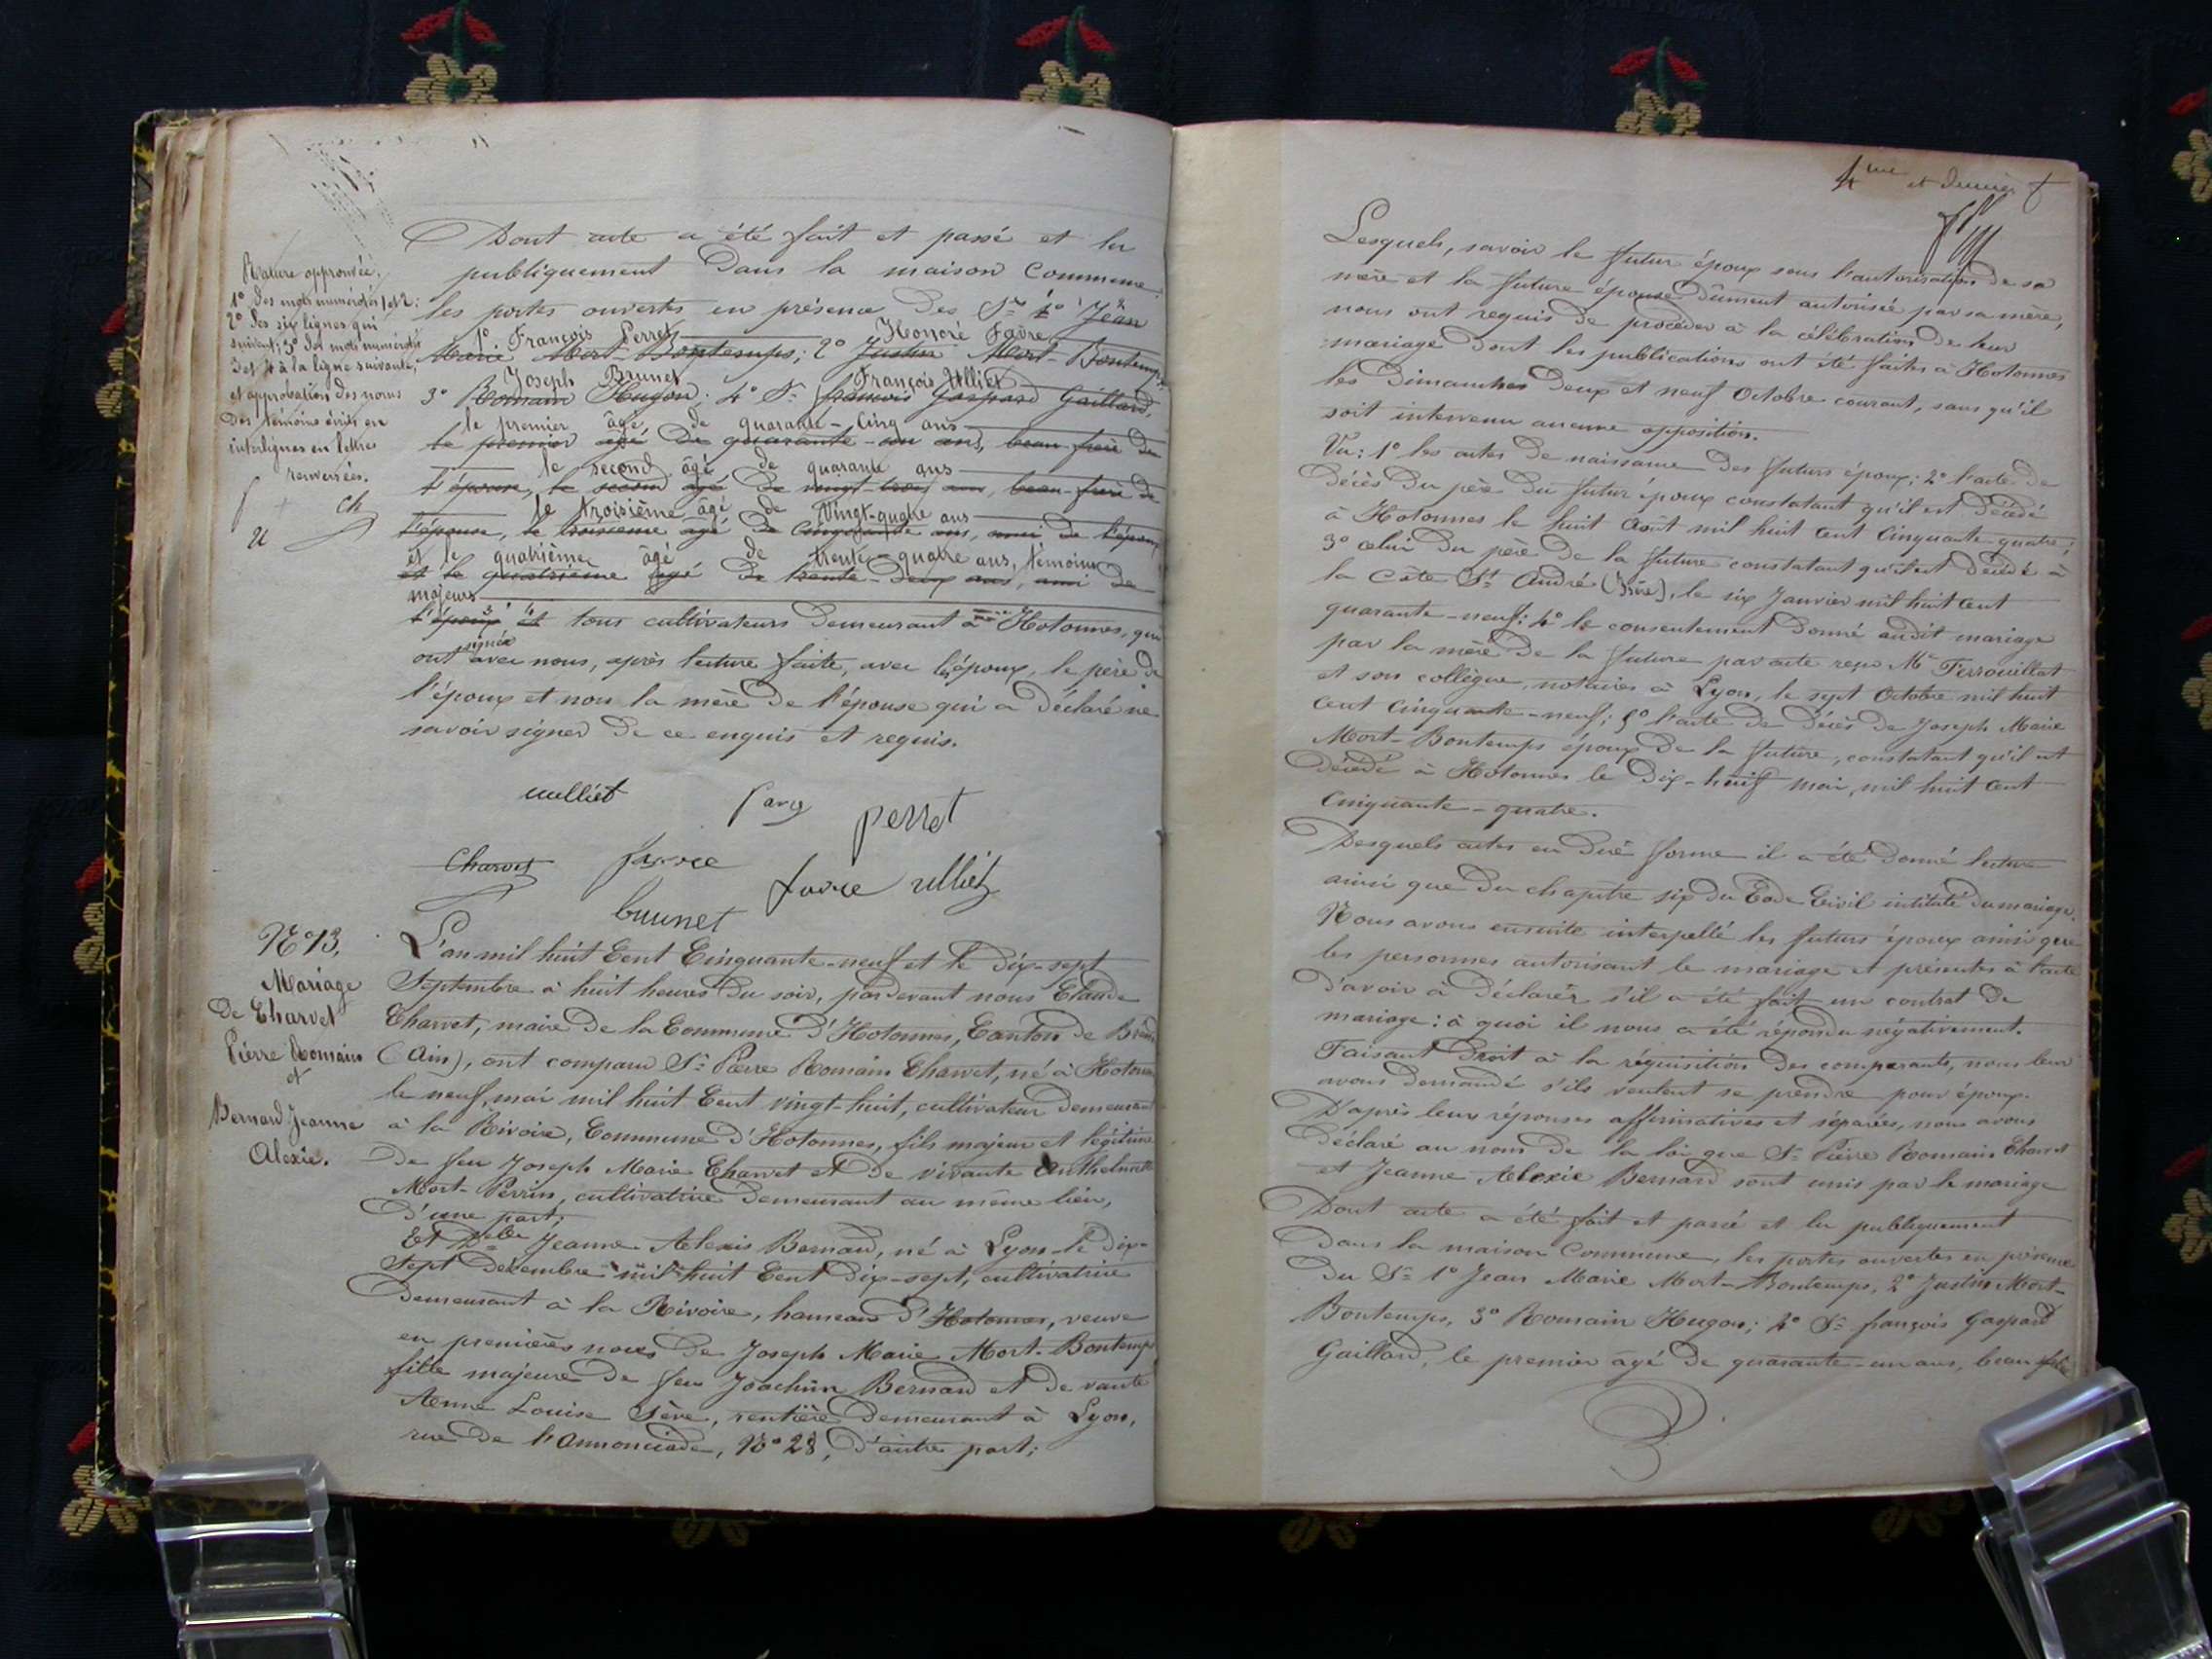 Rature approuvée,
1º des mots numérotés 1 et 2;
2º des six lignes qui
suivent; 3º des mots numérotés
3 et 4 à la ligne suivante,
et approbation des noms
des témoins écrits en
interlignes en lettres
renversées.
f
ch
u
Dont acte a été fait et passé et lu
publiquement dans la maison Commune
les portes ouvertes en présence des Srs 1º Jean
1º François Perret Honoré Favre
Marie Mort-Bontemps; 2º Justin Mort-Bontemps
Joseph Brunet François Ulliet
3º Romain Hugon; 4º Sr. françois Gaspard Gaillard,
le premier âgé de quarante-cinq ans
le premier âgé de quarante-un ans, beau-frère de
le second âgé de quarante ans
l'épouse, le second âgé de vingt-trois ans, beau-frère de
le troisième âgé de Vingt-quatre ans
l'épouse, le troisième âgé de Cinquante ans, ami de l'époux
et le quatrième âgé de trente-quatre ans, témoins
et le quatrième âgé de trente-deux ans, ami de
majeurs
l'époux et tous cultivateurs demeurant à Hotonnes, qui
signé
ont avec nous, après lecture faite, avec les époux, le père de
l'époux et non la mère de l'épouse qui a déclaré ne
savoir signer de ce enquis et requis.
uulliet
perret
Charvet favre favre ulliet
brunet
Nº 13.
Mariage
de Charvet
Pierre Romain
et
Bernard Jeanne
Alexie.
L'an mil huit Cent Cinquante-neuf et le dix-sept
Septembre à huit heures du soir, pardevant nous Claude
Charvet, maire de la Commune d'Hotonnes, Canton de Brénod
(Ain), ont comparu Sr. Pierre Romain Charvet, né à Hotonnes
le neuf mai mil huit Cent vingt-huit, cultivateur demeurant
à la Rivoire, Commune d'Hotonnes, fils majeur et légitime
de feu Joseph Marie Charvet et de vivante Anthelmette
Mort-Perrin, cultivatrice demeurant au même lieu,
d'une part;
Et Delle Jeanne Alexis Bernard, né à Lyon le dix-
sept décembre mil huit Cent dix-sept, cultivatrice
demeurant à la Rivoire, hameau d'Hotonnes, veuve
en premières noces de Joseph Marie Mort-Bontemps
fille majeure de feu Joachim Bernard et de vante
Anne Louise Sève, rentière demeurant à Lyon,
rue de l'annonciade, Nº 28, d'autre part;
4me et dernier
Lesquels, savoir le futur époux sous l'autorisation de sa
mère et la future épouse dûment autorisée par sa mère,
nous ont requis de procéder à la célébration de leur
mariage dont les publications ont été faites à Hotonnes
les dimanches deux et neuf Octobre courant, sans qu'il
soit intervenu aucune opposition.
Vu: 1º les actes de naissance des futurs époux; 2º l'acte de
décès du père du futur époux constatant qu'il est décédé
à Hotonnes le huit Août mil huit cent cinquante-quatre;
3º celui du père de la future constatant qu'il est décédé à
la Côte St. André (Isère), le six Janvier mil huit cent
quarante-neuf; 4º le consentement donné audit mariage
par la mère de la future par acte reçu Me Ferrouillat
et son collègue, notaires à Lyon, le sept Octobre mil huit
cent cinquante-neuf; 5º l'acte de décès de Joseph Marie
Mort-Bontemps époux de la future, constatant qu'il est
décédé à Hotonnes le dix-huit mai, mil huit cent
cinquante-quatre.
Desquels actes en due forme il a été donné lecture
ainsi que du chapitre six du Code Civil intitulé du mariage.
Nous avons ensuite interpellé les futurs époux ainsi que
les personnes autorisant le mariage et présentes à l'acte
d'avoir à déclarer s'il a été fait un contrat de
mariage: à quoi il nous a été répondu négativement.
Faisant droit à la réquisition des comparants, nous leur
avons demandé s'ils veulent se prendre pour époux.
D'après leurs réponses affirmatives et séparées, nous avons
déclaré au nom de la loi que Sr. Pierre Romain Charvet
et Jeanne Alexie Bernard sont unis par le mariage
Dont acte a été fait et passé et lu publiquement
dans la maison Commune, les portes ouvertes en présence
du Sr. 1º Jean Marie Mort-Bontemps, 2º Justin Mort-
Bontemps, 3º Romain Hugon; 4º Sr. françois Gaspard
Gaillard, le premier âgé de quarante-un ans, beau-frère